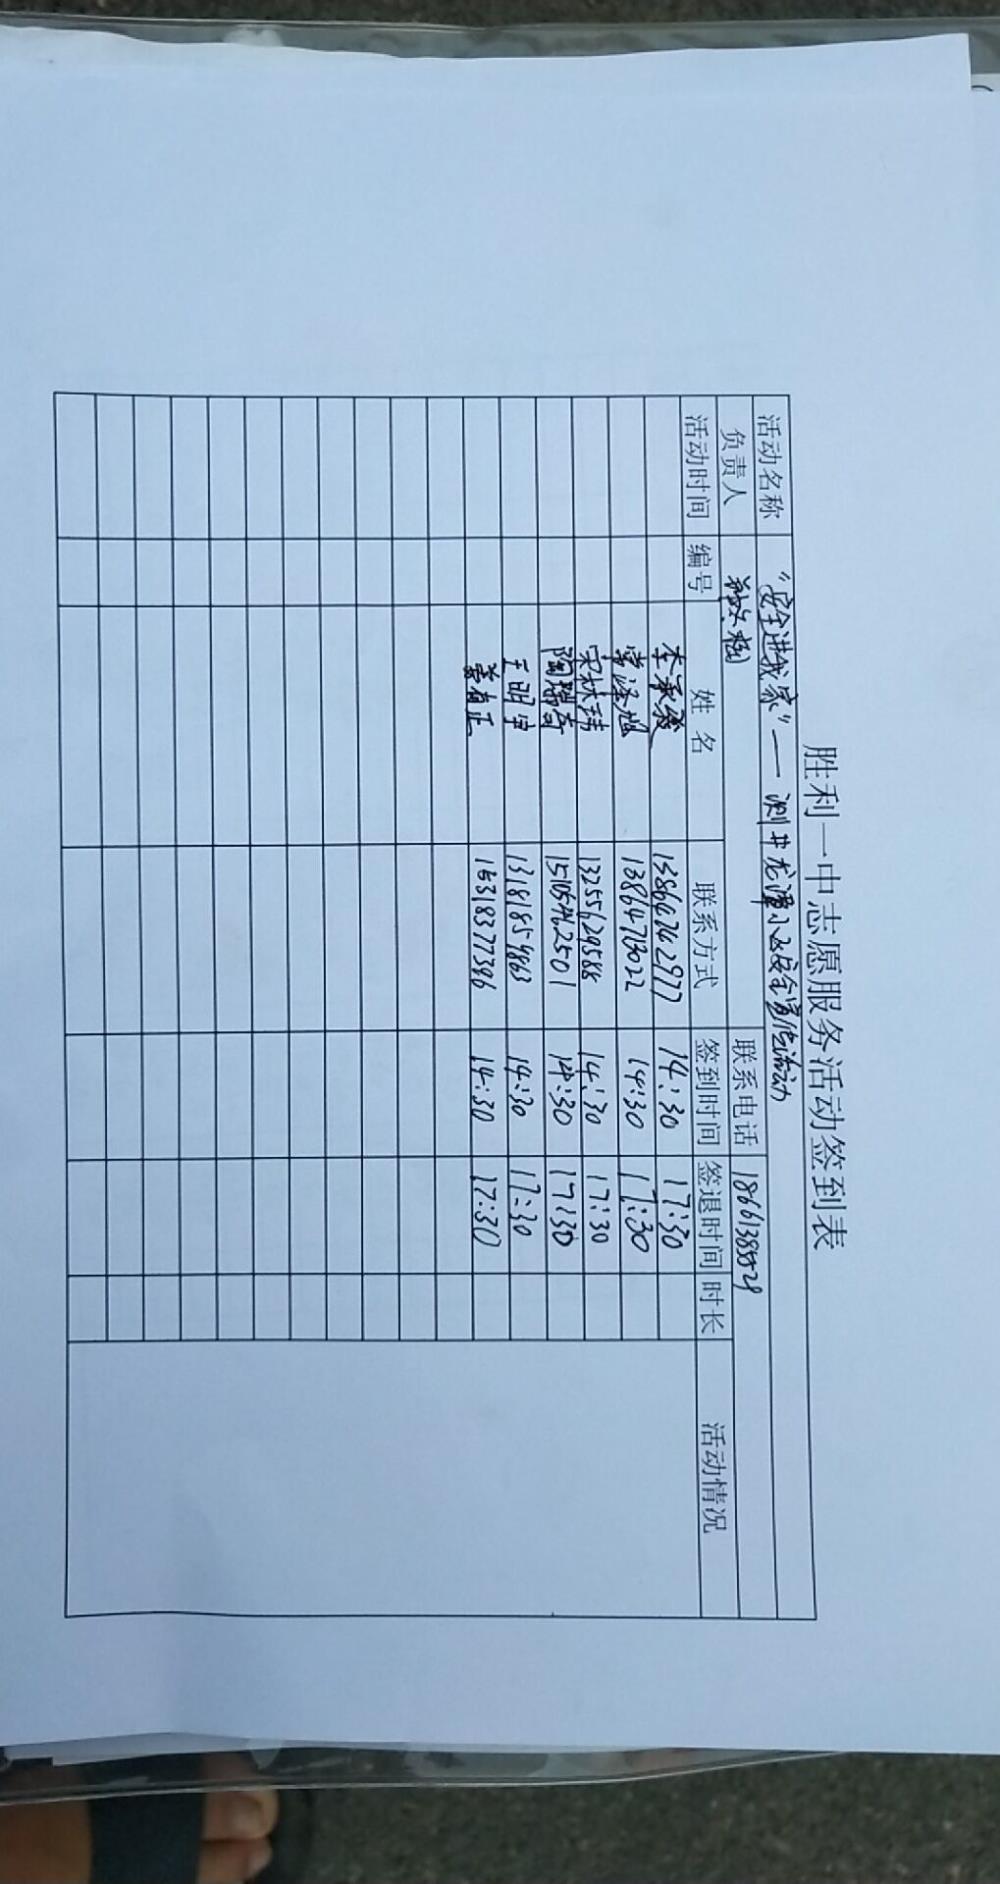 胜利一中志愿服务活动签到表
活动名称 “安全进我家”— 测井龙潭小区安全宣传活动
负责人 联系电话 18661385529
活动时间 编号 姓 名 联系方式 签到时间 签退时间 时长 活动情况
李承燚 13864742977 14:30 17:30
常泽旭 13864713022 14:30 17:30
宋林玮 13255629588 14:30 17:30
陶瑞奇 15105462501 14:30 17:30
王明宇 13181859863 14:30 17:30
姜有正 15318377396 14:30 17:30